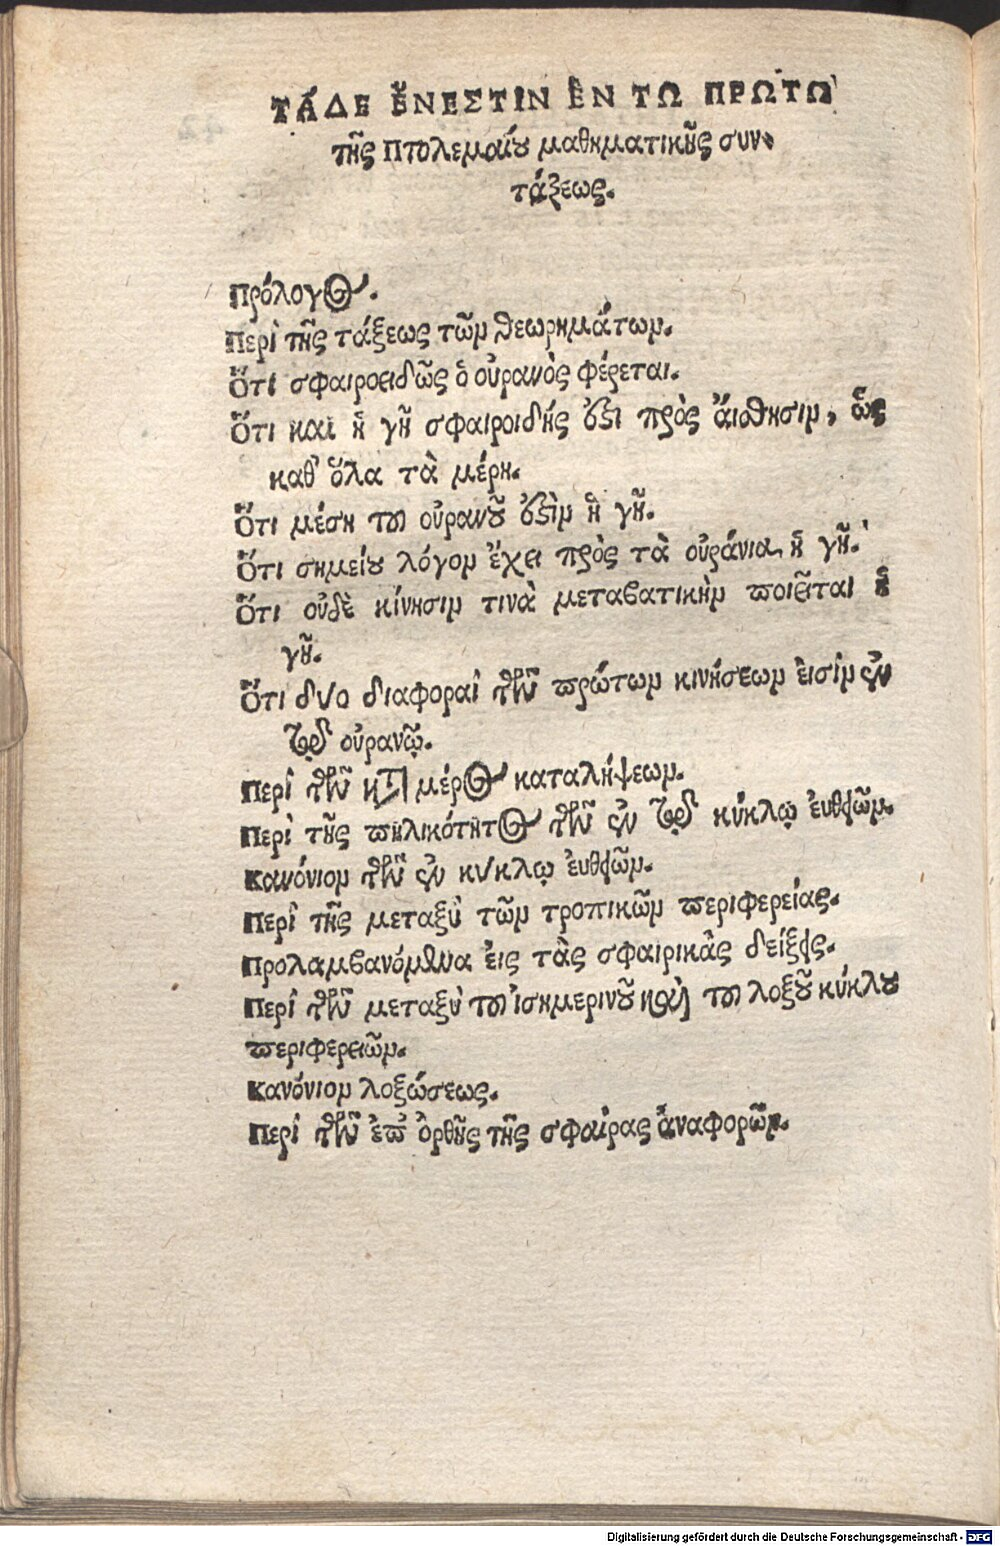 ΤΆΔΕ ἜΝΕΣΤΙΝ ἘΝ ΤΩ ΠΡΩΤΩ
τῆς Πτολεμαίου μαθηματικῆς συν-
τάξεως.
Πρόλογος.
Περὶ τῆς τάξεως τῶν θεωρημάτων.
Ὅτι σφαιροειδῶς ὁ οὐρανὸς φέρεται.
Ὅτι καὶ ἡ γῆ σφαιροιδής ἐστι πρὸς ἄισθησιν, ὡς
καθ' ὅλα τὰ μέρη.
Ὅτι μέση τοῦ οὐρανοῦ ἐστὶν ἡ γῆ.
Ὅτι σημείου λόγον ἔχει πρὸς τὰ οὐράνια, ἡ γῆ.
Ὅτι οὐδὲ κίνησιν τινὰ μεταβατικὴν ποιεῖται ἡ
γῆ.
Ὅτι δύο διαφοραὶ τῶν πρώτων κινήσεων ἐισὶν ἐν
τῷ οὐρανῷ.
Περὶ τῶν κατὰ μέρος καταλήψεων.
Περὶ τῆς πηλικότητος τῶν ἐν τῷ κύκλῳ ἐυθειῶν.
Κανόνιον τῶν ἐν κύκλῳ ἐυθειῶν.
Περὶ τῆς μεταξὺ τῶν τροπικῶν περιφερείας.
Προλαμβανόμενα ἐις τὰς σφαιρικὰς δείξεις.
Περὶ τῶν μεταξὺ τοῦ ἰσημερινοῦ καὶ τοῦ λοξοῦ κύκλου
περιφερειῶν.
Κανόνιον λοξώσεως.
Περὶ τῶν ἐπ' ὀρθῆς τῆς σφαίρας ἀναφορῶν.
Digitalisierung gefördert durch die Deutsche Forschungsgemeinschaft - DFG